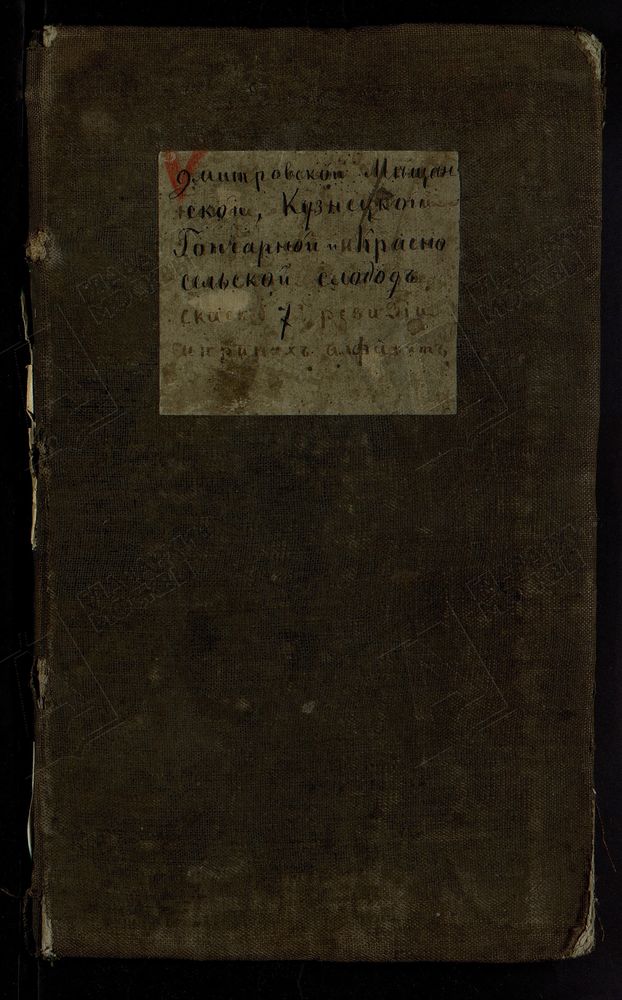 Дмитровской Мѣщан
ской, Кузнецкой
Гончарной и Красно
сельской слободъ
7 ревизіи
алфавитъ